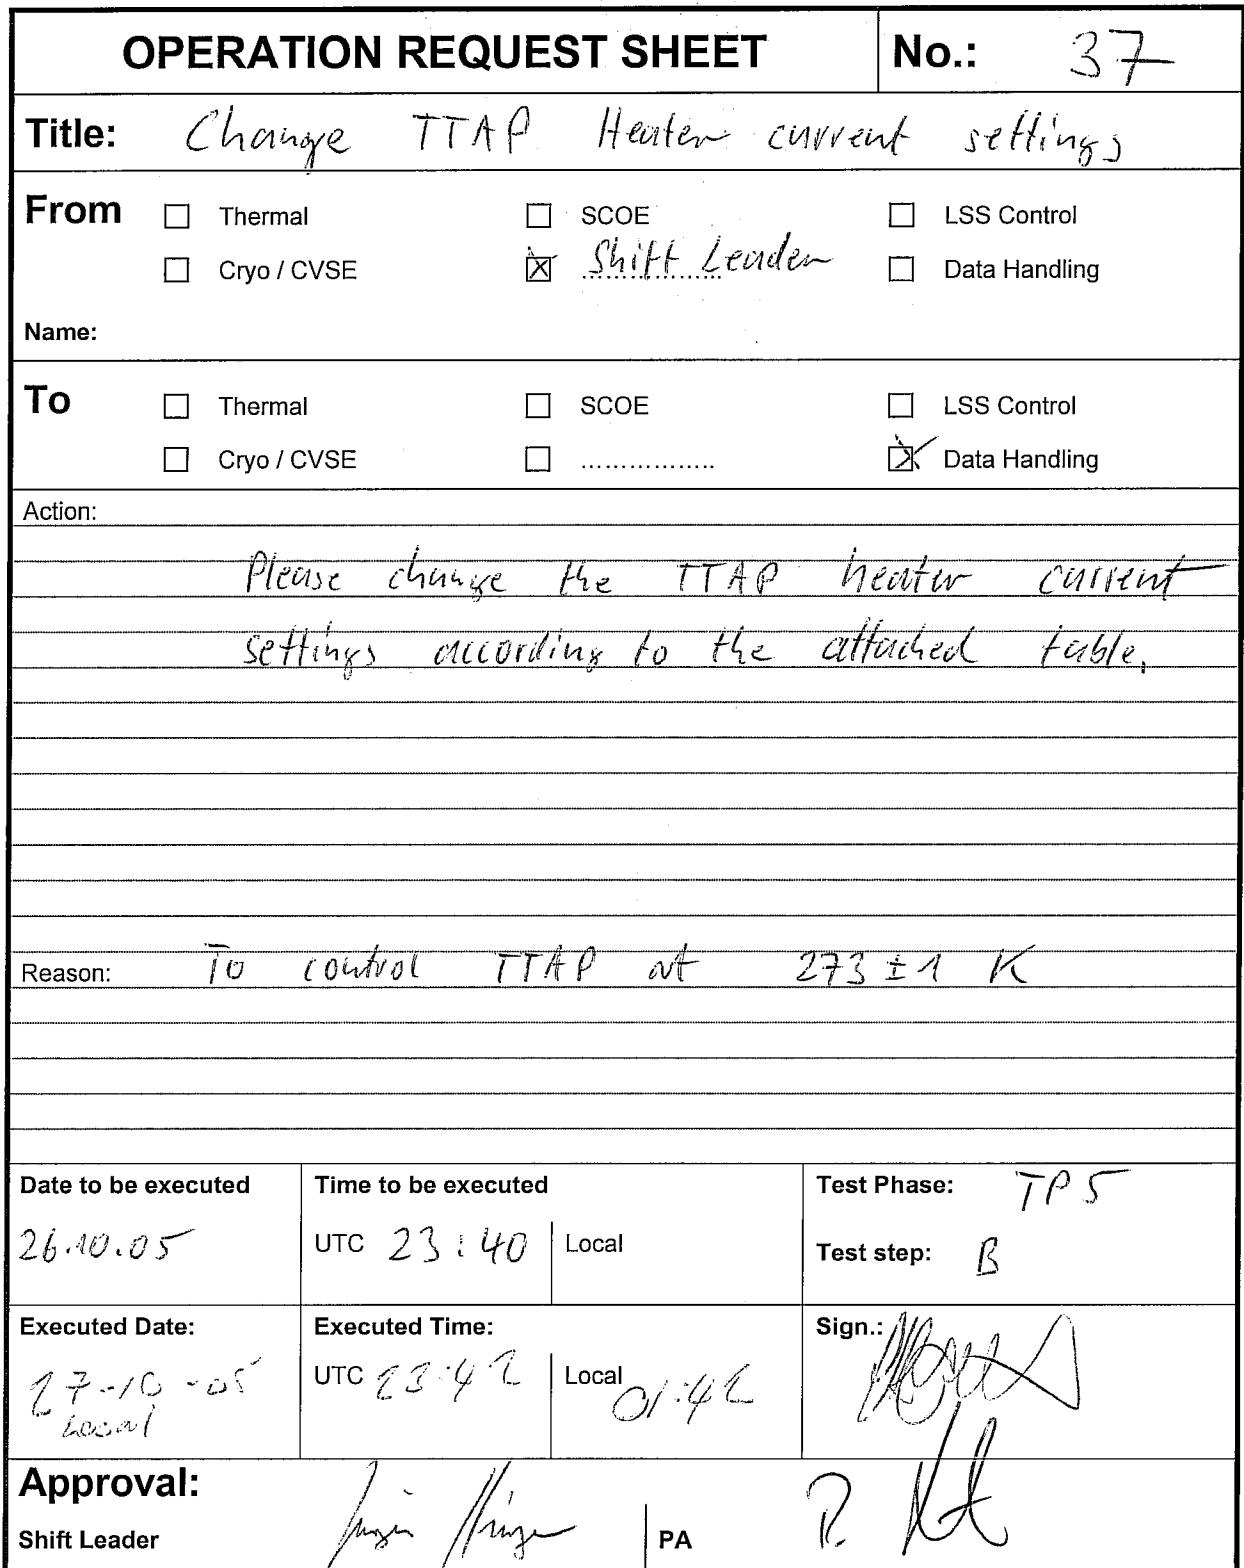 OPERATION REQUEST SHEET No.: 37
Title: Change TTAP Heater current settings
From ☐ Thermal ☐ SCOE ☐ LSS Control
☐ Cryo / CVSE ☒ Shift Leader ☐ Data Handling
Name:
To ☐ Thermal ☐ SCOE ☐ LSS Control
☐ Cryo / CVSE ☐ .................. ☒ Data Handling
Action:
Please change the TTAP heater current
settings according to the attached table.
Reason: To control TTAP at 273 ± 1 K
Date to be executed Time to be executed Test Phase: TP5
26.10.05 UTC 23:40 Local Test step: B
Executed Date: Executed Time: Sign.:
27-10-05 UTC 23:42 Local 01:42
Local
Approval:
Shift Leader PA